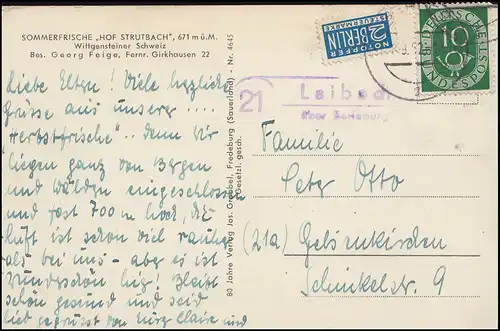 SOMMERFRISCHE „HOF STRUTBACH", 671 m ü. M.
Wittgensteiner Schweiz
Bes. Georg Feige, Fernr. Girkhausen 22
Liebe Elben! Viele herzliche
Grüsse aus unserer
Herbstfrische".. denn wir
liegen ganz von Bergen
und Wäldern eingeschlossen
und fast 700 m hoch, die
Luft ist schon viel rauher
als bei uns - aber es ist
wunderschön hier! Bleibt
schön gesund und seid
lieb gegrüsst von Eurer Claire und
80 Jahre Verlag Jos. Grobbel, Fredeburg (Sauerland) - Nr. 4645
Gesetzl. gesch.
NOTOPFER
2 BERLIN
STEUERMARKE
10
DEUTSCHE BUNDESPOST
21
Laibach
über Berleburg
Familie
Petz Otto
(21a) Gelsenkirchen
Schinkelstr. 9